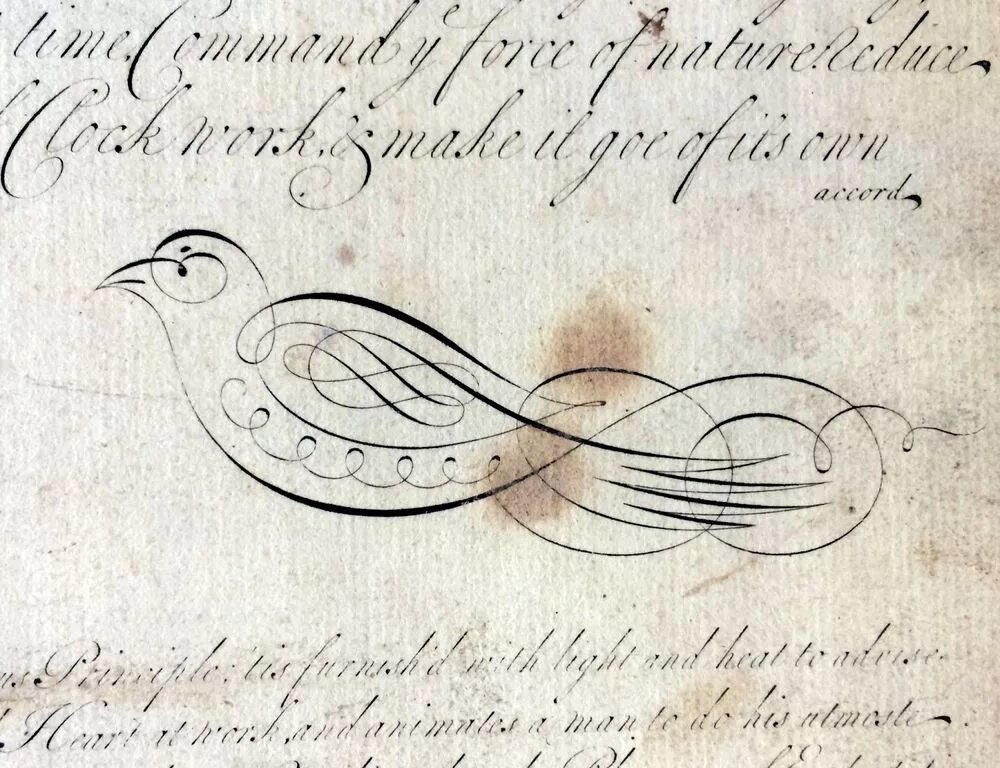 time, Command yᵉ force of nature. Reduce
Clock work, & make it goe of it's own
accord,
us Principle; 'tis furnish'd with light and heat to advise
Heart at work, and animates a man to do his utmoste.